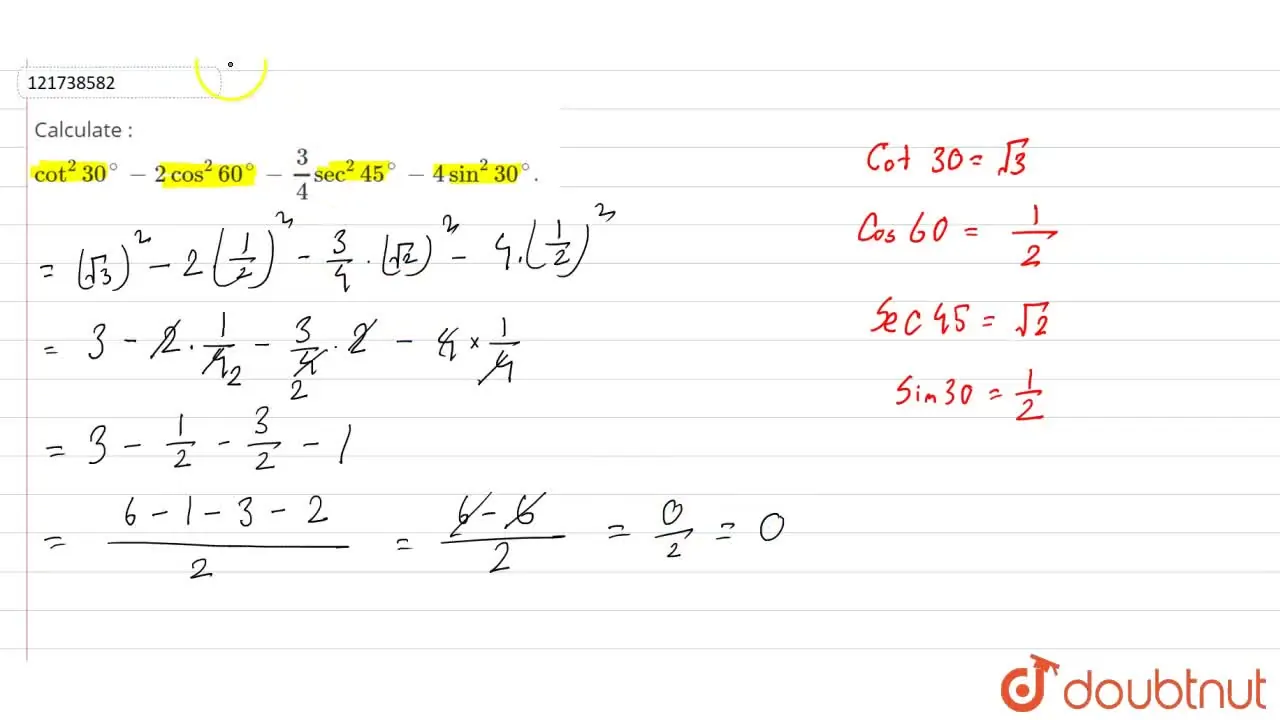 121738582
Calculate :
cot² 30° − 2 cos² 60° − 3/4 sec² 45° − 4 sin² 30°.
= (√3)² − 2(1/2)² − 3/4 · (√2)² − 4·(1/2)²
= 3 − 2 · 1/4 2 − 3/4 2 · 2 − 4 × 1/4
= 3 − 1/2 − 3/2 − 1
= 6 − 1 − 3 − 2 / 2 = 6 − 6 / 2 = 0/2 = 0
Cot 30 = √3
Cos 60 = 1/2
Sec 45 = √2
Sin 30 = 1/2
doubtnut